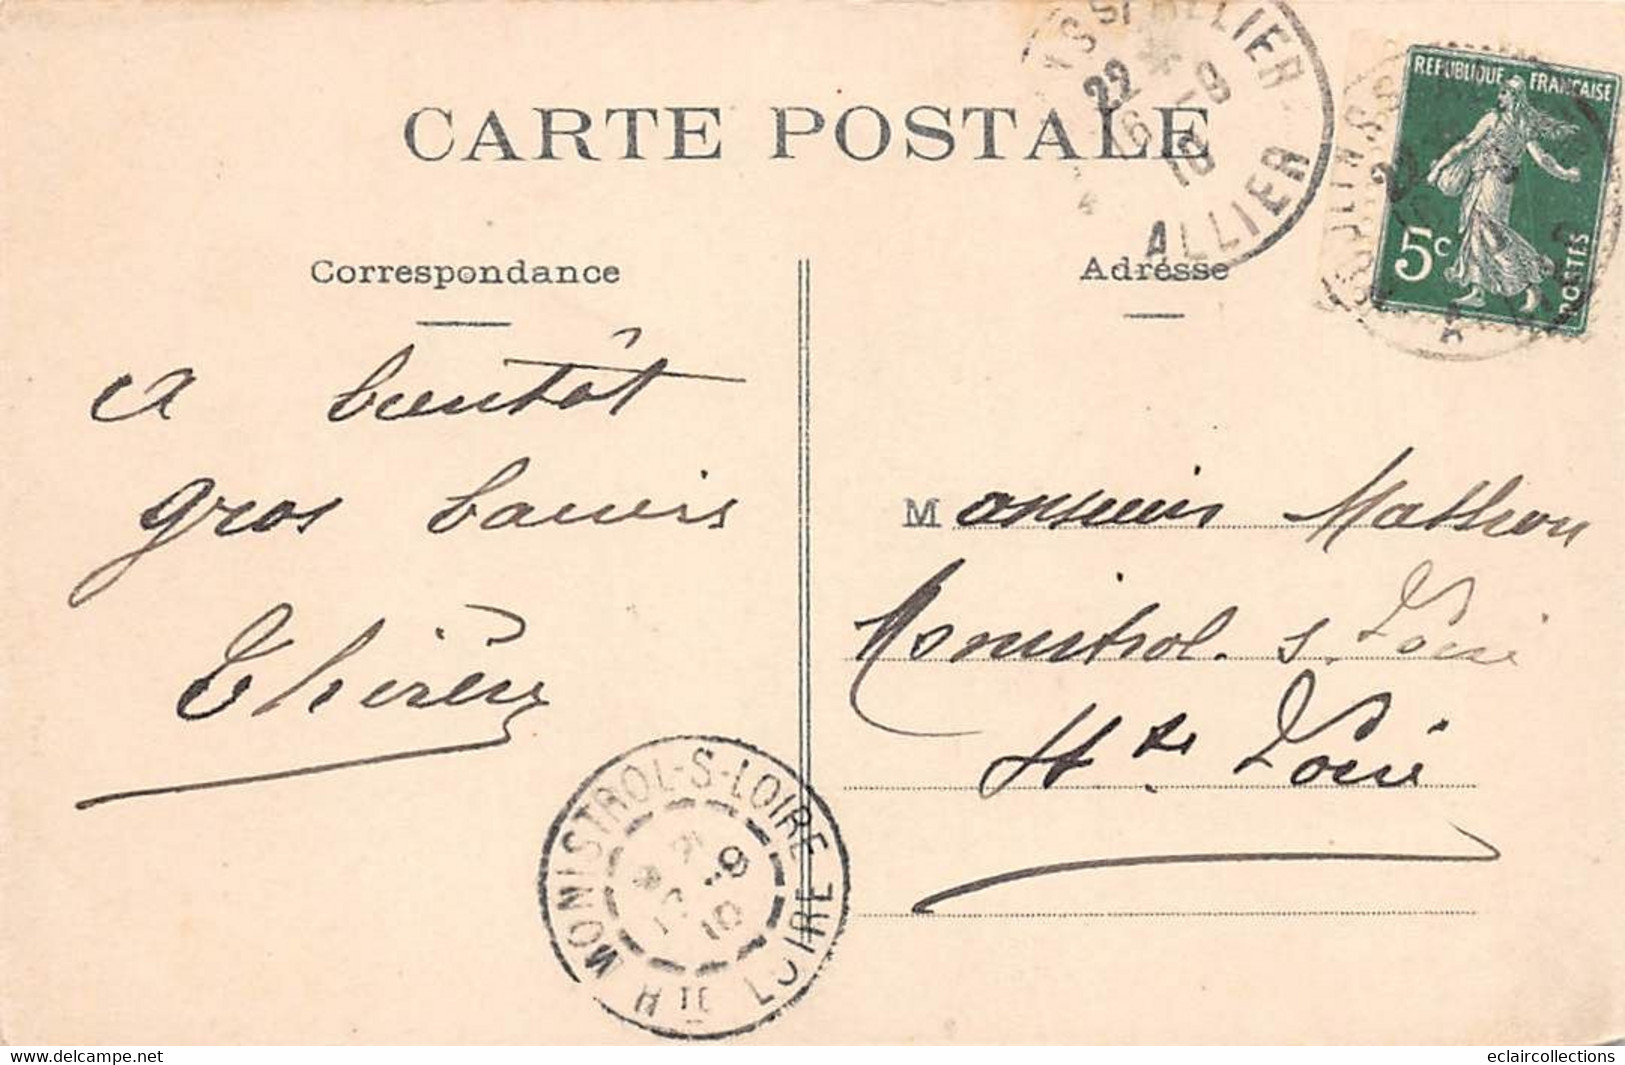 CARTE POSTALE
Correspondance
Adresse
REPUBLIQUE FRANÇAISE
5c
POSTES
ALLIER
22
16 -9
10
A bientôt
gros baisers
Monsieur Mathron
Monistrol. s. Loire
Hte Loire
MONISTROL-S-LOIRE
HTE LOIRE
-9
10
www.delcampe.net
eclaircollections